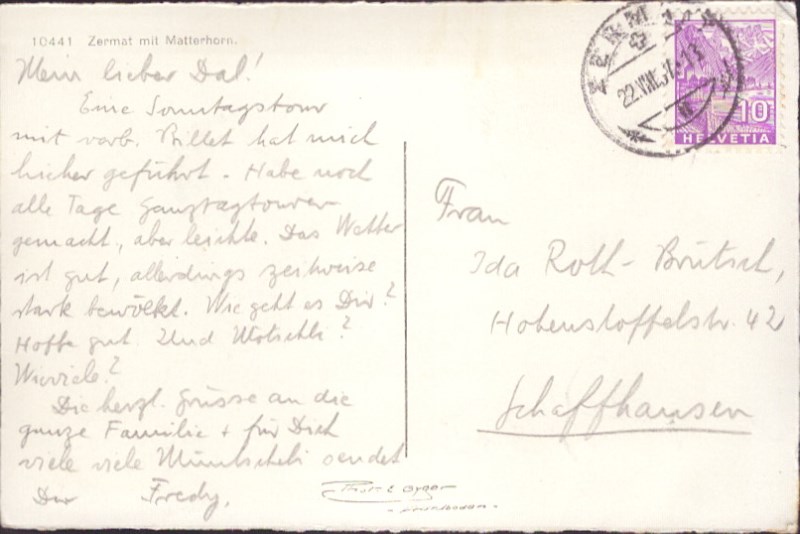 10441 Zermat mit Matterhorn.
Mein lieber Dal!
Eine Sonntagstour
mit verb. Billet hat mich
hieher geführt. Habe noch
alle Tage Ganztagtouren
gemacht, aber leichte. Das Wetter
ist gut, allerdings zeitweise
stark bewölkt. Wie geht es Dir?
Hoffe gut. Und Motschli?
Wieviele?
Die herzl. Grüsse an die
ganze Familie + für Dich
viele viele Müntscheli sendet
Dir Fredy.
ZERMATT
22.VIII.
10
HELVETIA
Frau
Ida Roth-Brütsch,
Hohenstoffelstr. 42
Schaffhausen
Photo Gyger
Adelboden